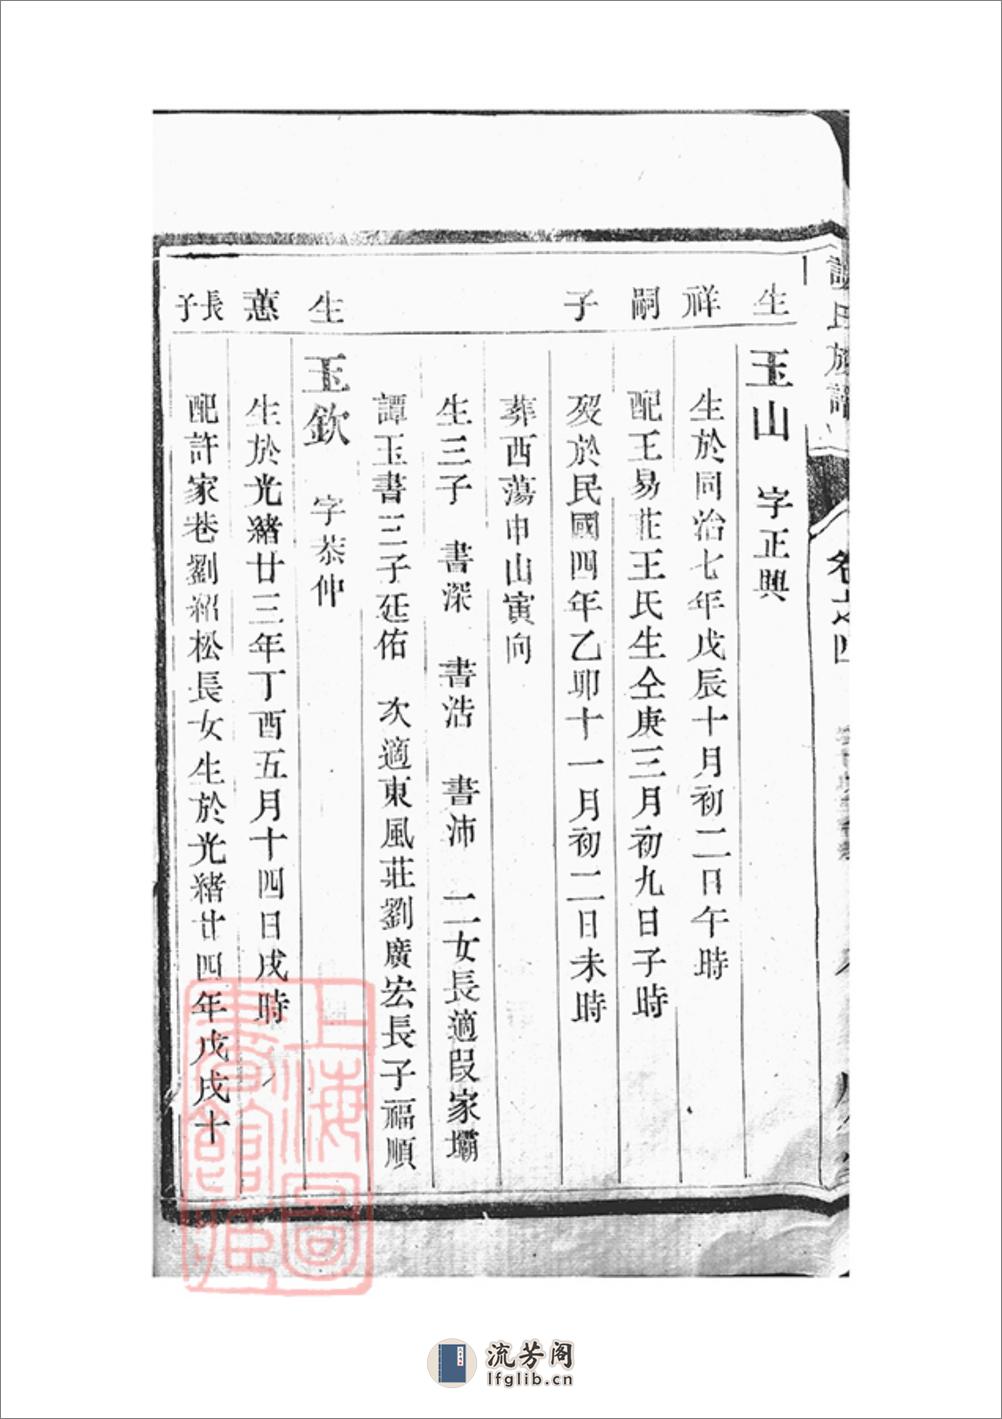 氏族譜
卷之四
生
祥
嗣
子
生
蕙
長子
玉山 字正興
生於同治七年戊辰十月初二日午時
配王易莊王氏生仝庚三月初九日子時
歿於民國四年乙卯十一月初二日未時
葬西蕩申山寅向
生三子 書深 書浩 書沛 二女長適段家壩
譚玉書三子廷佑 次適東風莊劉廣宏長子福順
玉欽 字恭仲
生於光緒廿三年丁酉五月十四日戌時
配許家巷劉紹松長女生於光緒廿四年戊戌十
上海圖書館藏
流芳阁
lfglib.cn